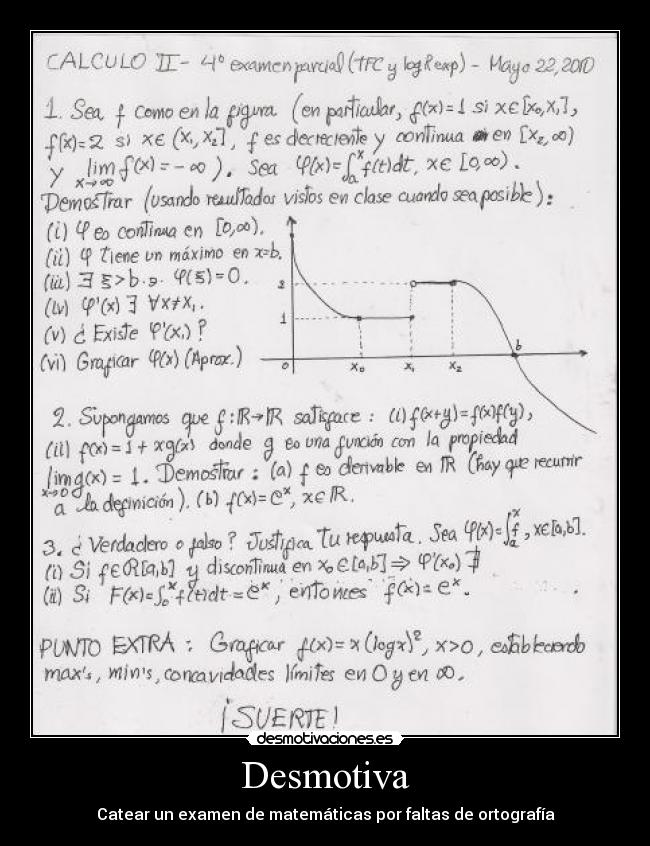 CALCULO II - 4º examen parcial (TFC y log & exp) - Mayo 22, 2010
1. Sea f como en la figura (en particular, f(x)=1 si x∈[x₀,x₁],
f(x)=2 si x∈(x₁,x₂], f es decreciente y continua en [x₂,∞)
y lim f(x)=-∞). Sea φ(x)=∫ₐˣf(t)dt, x∈[0,∞).
x→∞
Demostrar (usando resultados vistos en clase cuando sea posible):
(i) φ es continua en [0,∞).
(ii) φ tiene un máximo en x=b.
(iii) ∃ ξ>b .э. φ(ξ)=0.
(iv) φ'(x) ∃ ∀x≠x₁.
(v) ¿Existe φ'(x₁)?
(vi) Graficar φ(x) (Aprox.)
2
1
b
0 x₀ x₁ x₂
2. Supongamos que f:ℝ→ℝ satisface: (i) f(x+y)=f(x)f(y),
(ii) f(x)=1+xg(x) donde g es una función con la propiedad
lim g(x)=1. Demostrar: (a) f es derivable en ℝ (hay que recurrir
x→0
a la definición). (b) f(x)=eˣ, x∈ℝ.
3. ¿Verdadero o falso? Justifica tu respuesta. Sea φ(x)=∫ₐˣf, x∈[a,b].
(i) Si f∈R[a,b] y discontinua en x₀∈[a,b] ⇒ φ'(x₀) ∄
(ii) Si F(x)=∫₀ˣf(t)dt=eˣ, entonces f(x)=eˣ.
PUNTO EXTRA: Graficar f(x)=x(logx)², x>0, estableciendo
max's, min's, concavidades límites en 0 y en ∞.
¡SUERTE!
desmotivaciones.es
Desmotiva
Catear un examen de matemáticas por faltas de ortografía